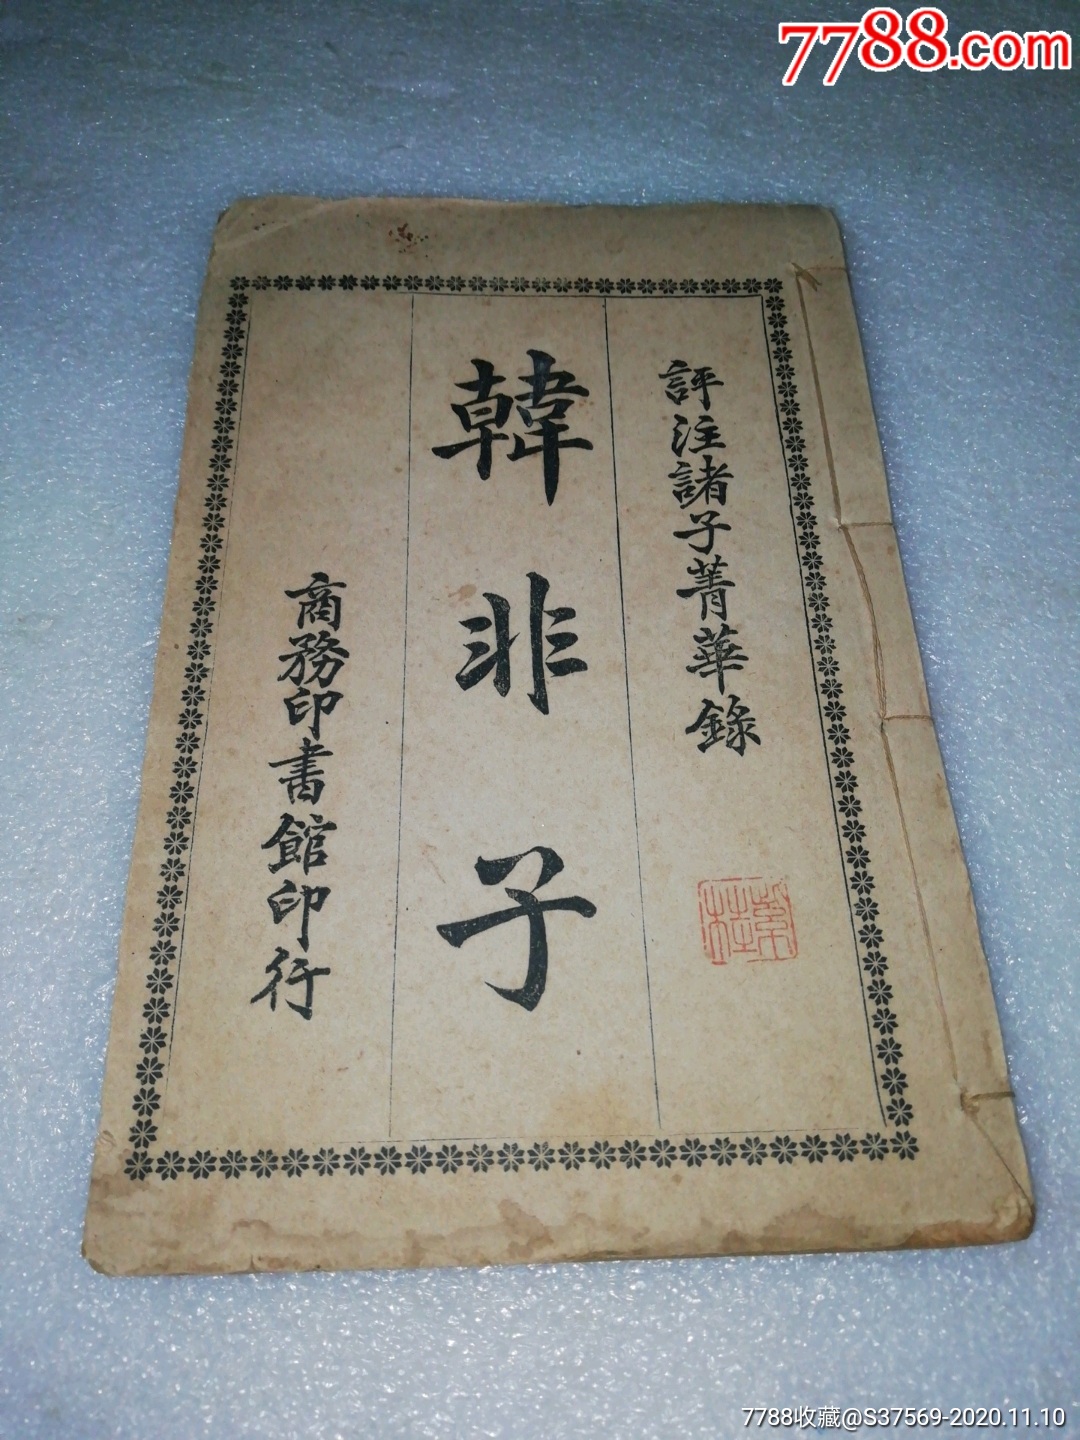 7788.com
評注諸子菁華錄
韓非子
商務印書館印行
7788收藏@S37569-2020.11.10